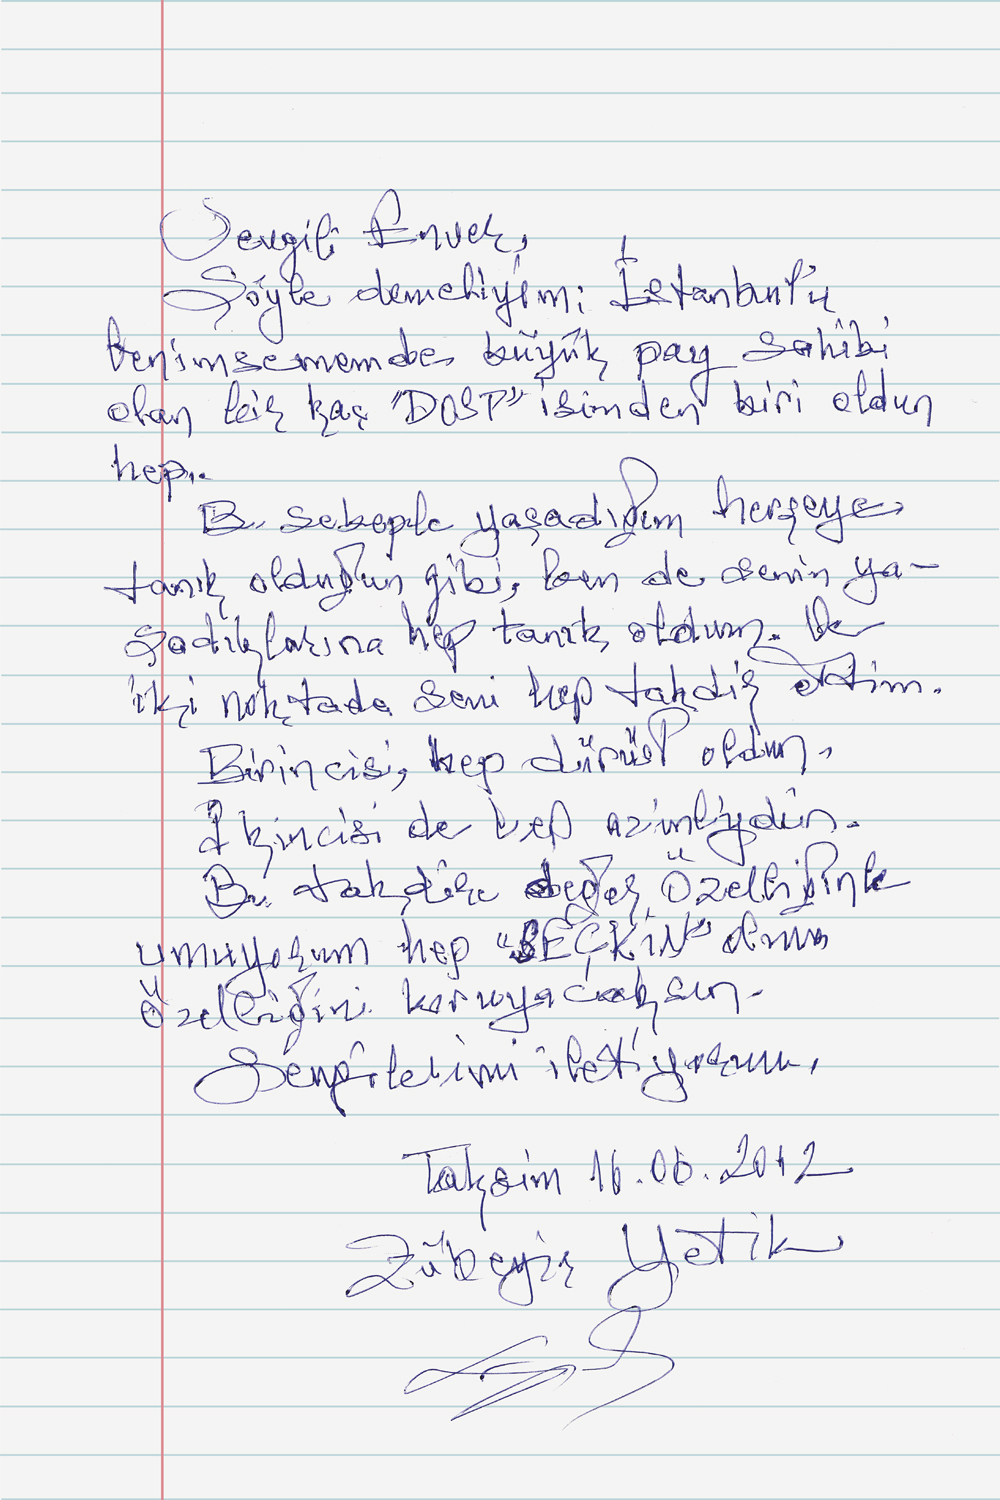 Sevgili Enver,
Şöyle demeliyim; İstanbul'u
benimsememde büyük pay sahibi
olan bir kaç "DOST" isimden biri oldun
hep..
Bu sebeple yaşadığım herşeye
tanık olduğun gibi, ben de senin ya-
şadıklarına hep tanık oldum. Ve
iki noktada seni hep takdir ettim.
Birincisi, hep dürüst oldun.
İkincisi de hep azimliydin.
Bu takdire değer özelliğinle
umuyorum hep "SEÇKİN" olma
özelliğini koruyacaksın.
Sevgilerimi iletiyorum.
Taksim 16.06.2012
Zübeyir Yetik